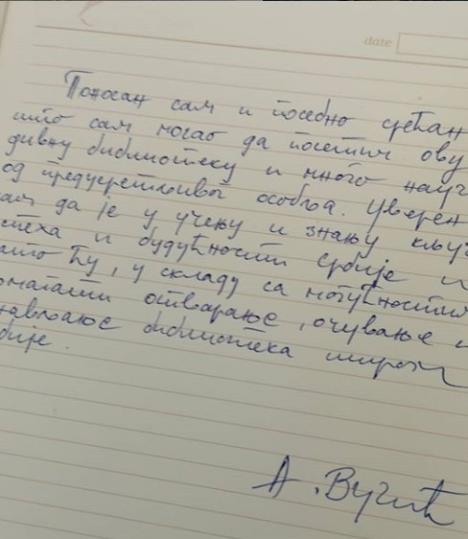 date
Поносан сам и посебно срећан
што сам могао да посетим ову
дивну библиотеку и много науч
од предусретљивог особља. Уверен
сам да је у учењу и знању кључ
спеха и будућности Србије и
зато ћу, у складу са могућностим
омагати отварање, очување и
нављање библиотека широм
бије.
А. Вучић